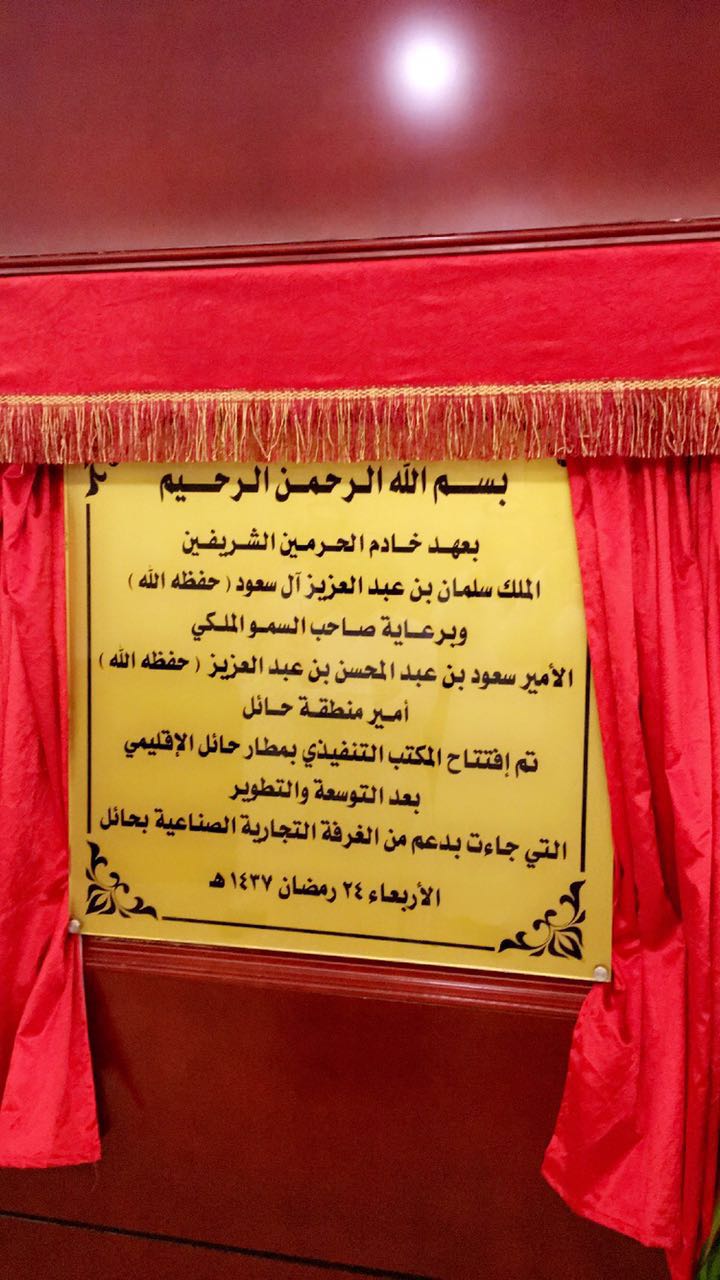 بسم الله الرحمن الرحيم
بعهد خادم الحرمين الشريفين
الملك سلمان بن عبد العزيز آل سعود ( حفظه الله )
وبرعاية صاحب السمو الملكي
الأمير سعود بن عبد المحسن بن عبد العزيز ( حفظه الله )
أمير منطقة حائل
تم إفتتاح المكتب التنفيذي بمطار حائل الإقليمي
بعد التوسعة والتطوير
التي جاءت بدعم من الغرفة التجارية الصناعية بحائل
الأربعاء ٢٤ رمضان ١٤٣٧ هـ